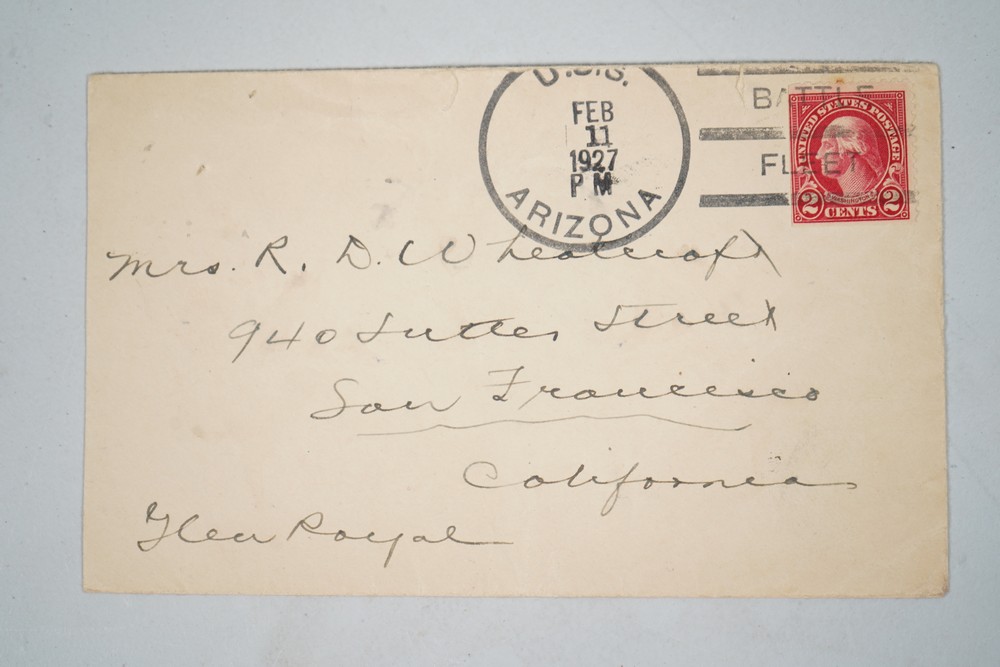 U.S.S.
FEB
11
1927
P M
ARIZONA
BATTLE
FLEET
UNITED STATES POSTAGE
WASHINGTON
2 CENTS 2
Mrs. R. D. Wheatcroft
940 Sutter Street
San Francisco
California
Glen Royal